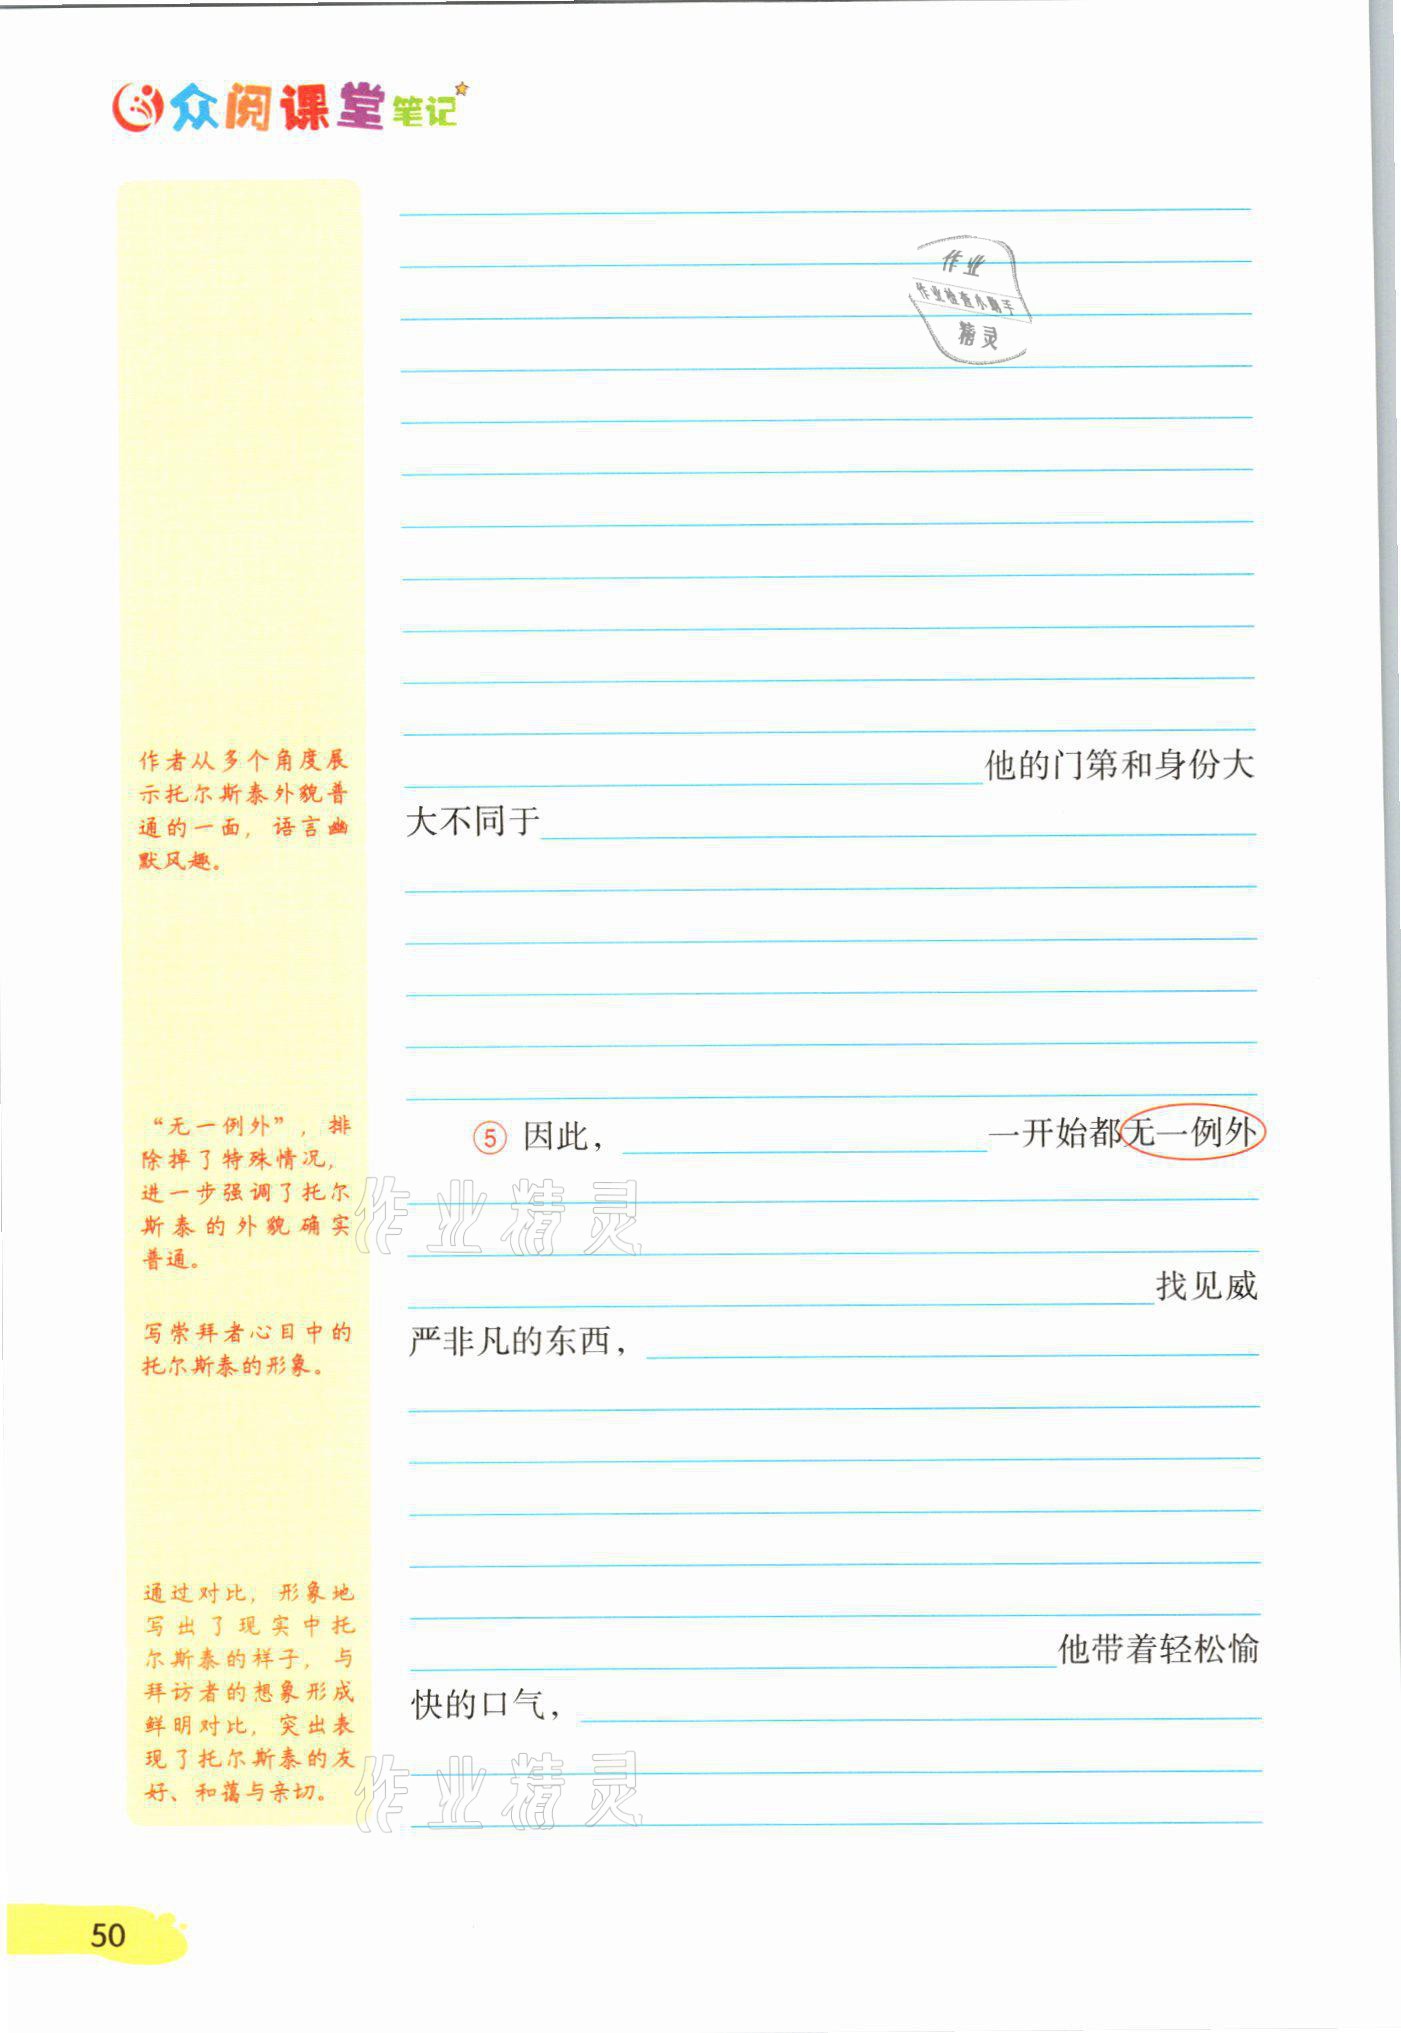 众阅课堂笔记
作业
作业检查小助手
精灵
作者从多个角度展
示托尔斯泰外貌普
通的一面，语言幽
默风趣。
他的门第和身份大
大不同于
“无一例外”，排
除掉了特殊情况，
进一步强调了托尔
斯泰的外貌确实
普通。
⑤ 因此，
一开始都无一例外
作业精灵
找见威
严非凡的东西，
写崇拜者心目中的
托尔斯泰的形象。
通过对比，形象地
写出了现实中托
尔斯泰的样子，与
拜访者的想象形成
鲜明对比，突出表
现了托尔斯泰的友
好、和蔼与亲切。
他带着轻松愉
快的口气，
作业精灵
50